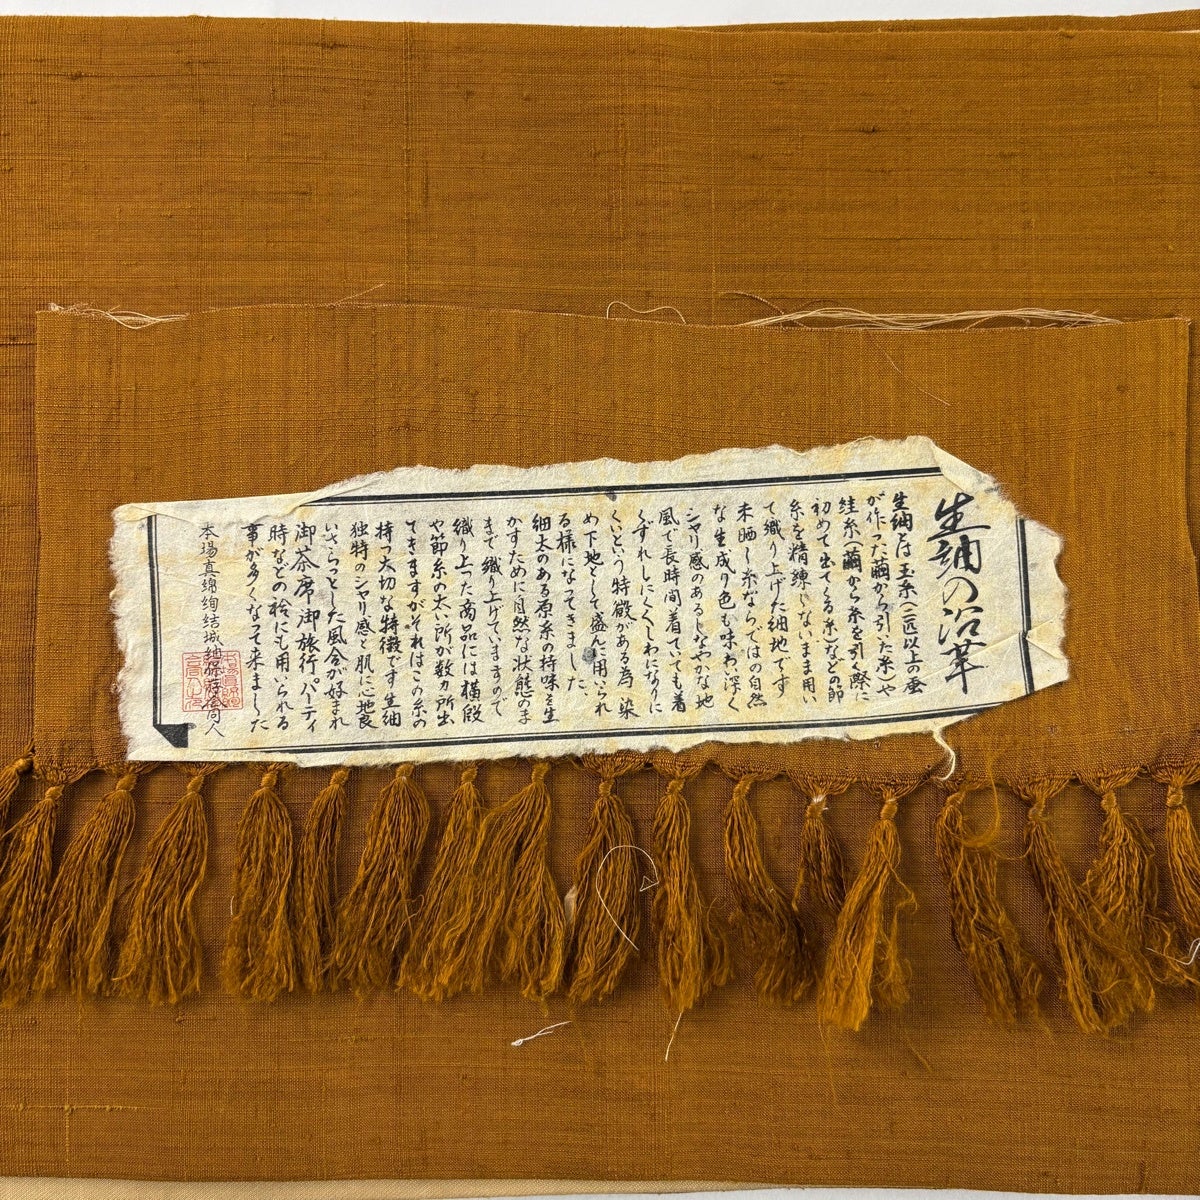 生紬の沿革
生紬とは玉糸(二匹以上の蚕
が作った繭から引いた糸)や
絓糸(繭から糸を引く際に
初めて出てくる糸)などの節
糸を精練しないまま用い
て織り上げた紬地です
未晒し糸ならではの自然
な生成り色も味わい深く
シャリ感のあるしなやかな地
風で長時間着ていても着
くずれしにくくしわになりに
くいという特徴がある為 染
め下地として盛んに用いられ
る様になってきました
細太のある原糸の持味を生
かすために自然な状態のま
まで織り上げていますので
織り上った商品には横段
や節糸の太い所が数ヵ所出
てきますがそれはこの糸の
持つ大切な特徴です生紬
独特のシャリ感と肌に心地良
いさらっとした風合が好まれ
御茶席御旅行、パーティ
時などの袷にも用いられる
事が多くなって来ました
本場真綿絢結城紬保存会同人